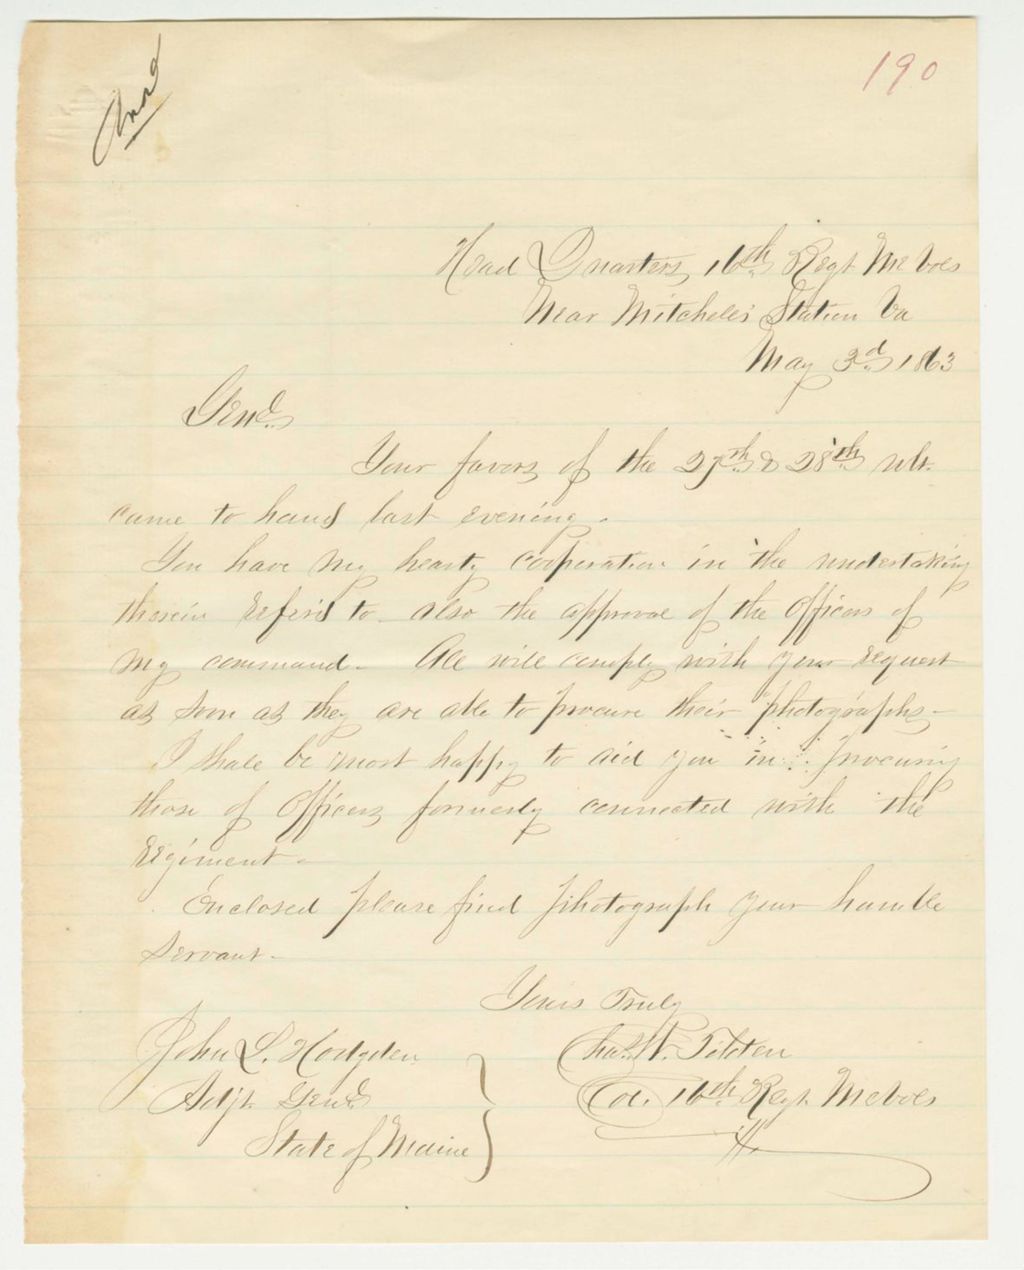 Ansd
190
Head Quarters, 16th Regt Me Vols
Near Mitchells Station Va
May 3d 1863
Genl.
Your favors of the 27th & 28th ult.
came to hand last evening.
You have my hearty cooperation in the undertaking
therein referd to. also the approval of the officers of
my command. All will comply with your request
as soon as they are able to procure their photographs-
I shall be most happy to aid you in procuring
those of officers formerly connected with the
regiment-
Enclosed please find photograph your humble
servant-
Yours Truly
Chas. W. Tilden
Col. 16th Regt. Me Vols
John L. Hodgdon
Adjt. Genl.
State of Maine